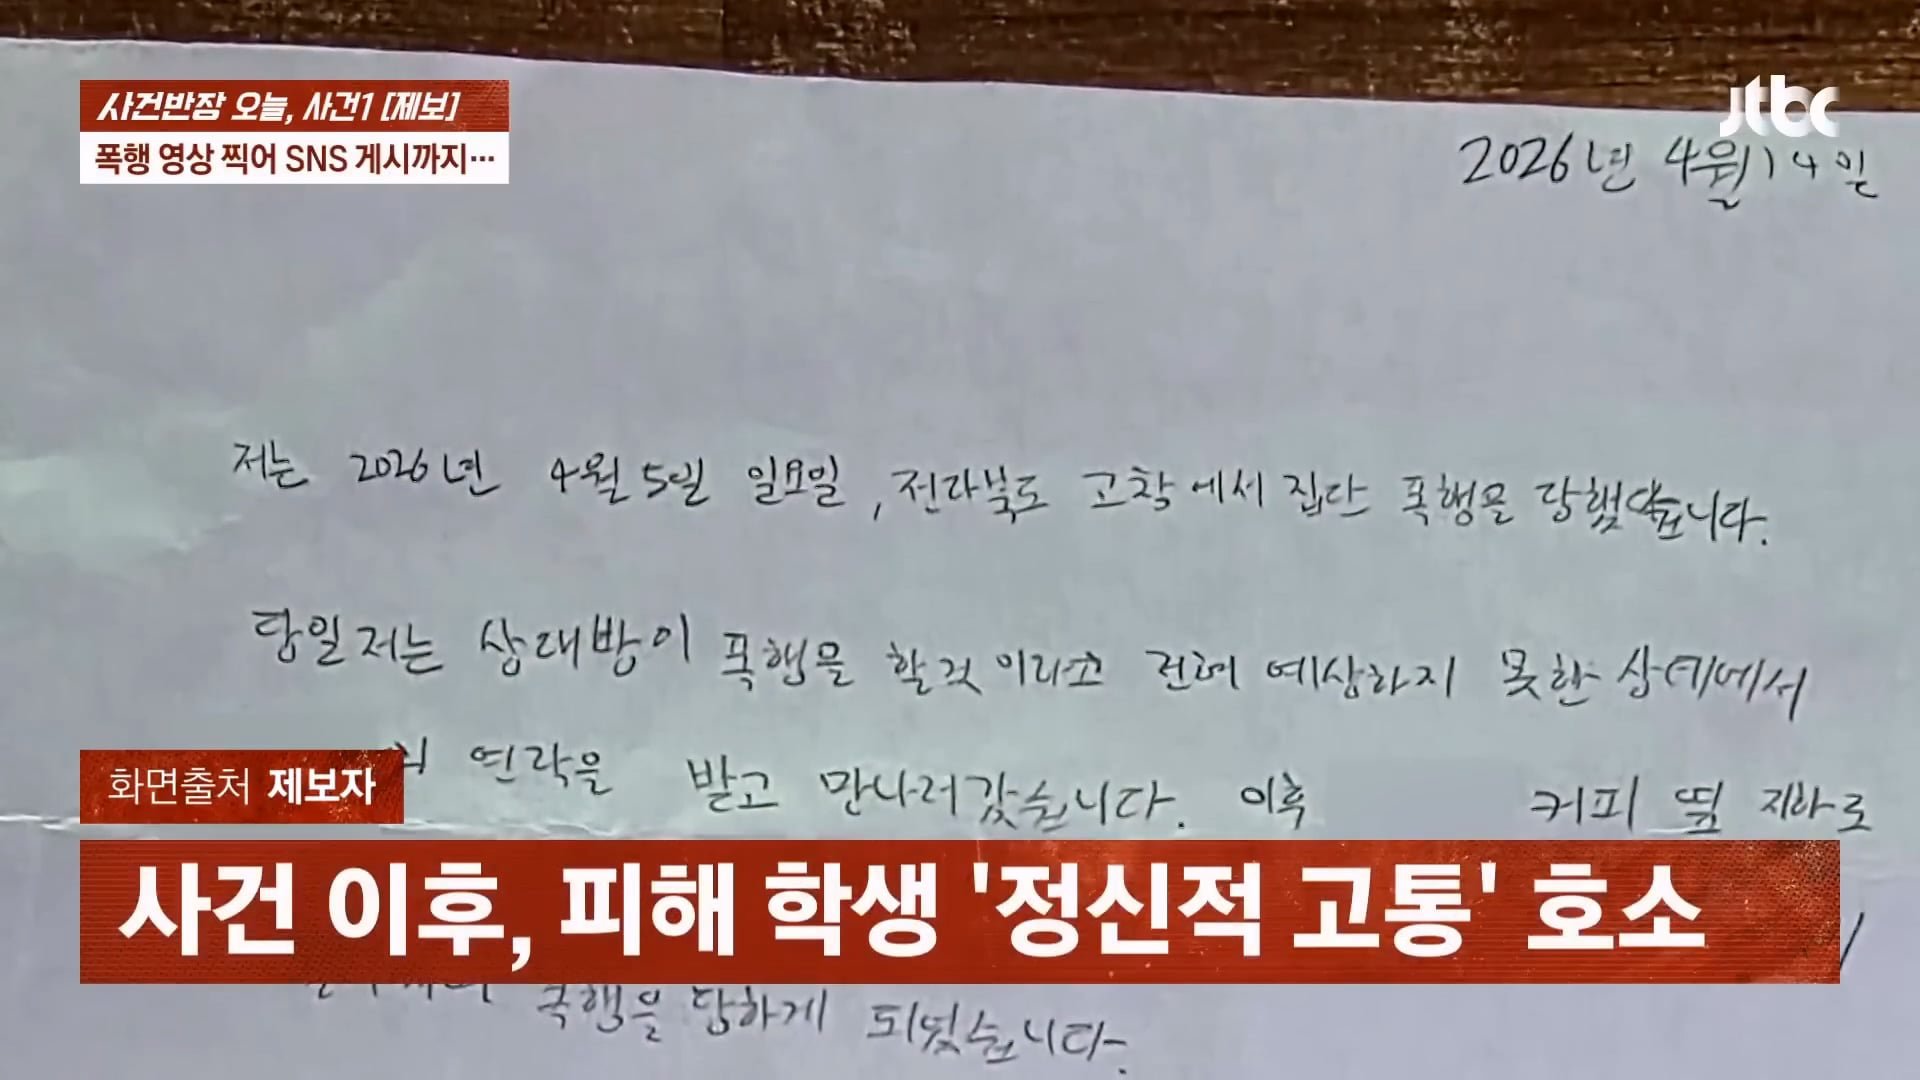 사건반장 오늘, 사건1 [제보]
폭행 영상 찍어 SNS 게시까지…
jtbc
2026년 4월 14일
저는 2026년 4월 5일 일요일, 전라북도 고창에서 집단 폭행을 당했습니다.
당일 저는 상대방이 폭행을 할것 이라고 전혀 예상하지 못한 상태에서
연락을 받고 만나러갔습니다. 이후 커피 옆 지하로
화면출처 제보자
사건 이후, 피해 학생 '정신적 고통' 호소
폭행을 당하게 되었습니다.